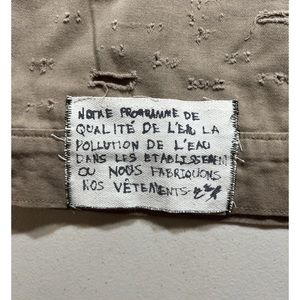 NOTRE PROGRAMME DE
QUALITÉ DE L'EAU LA
POLLUTION DE L'EAU
DANS LES ETABLISSEMENT
OU NOUS FABRIQUONS
NOS VÊTEMENTS